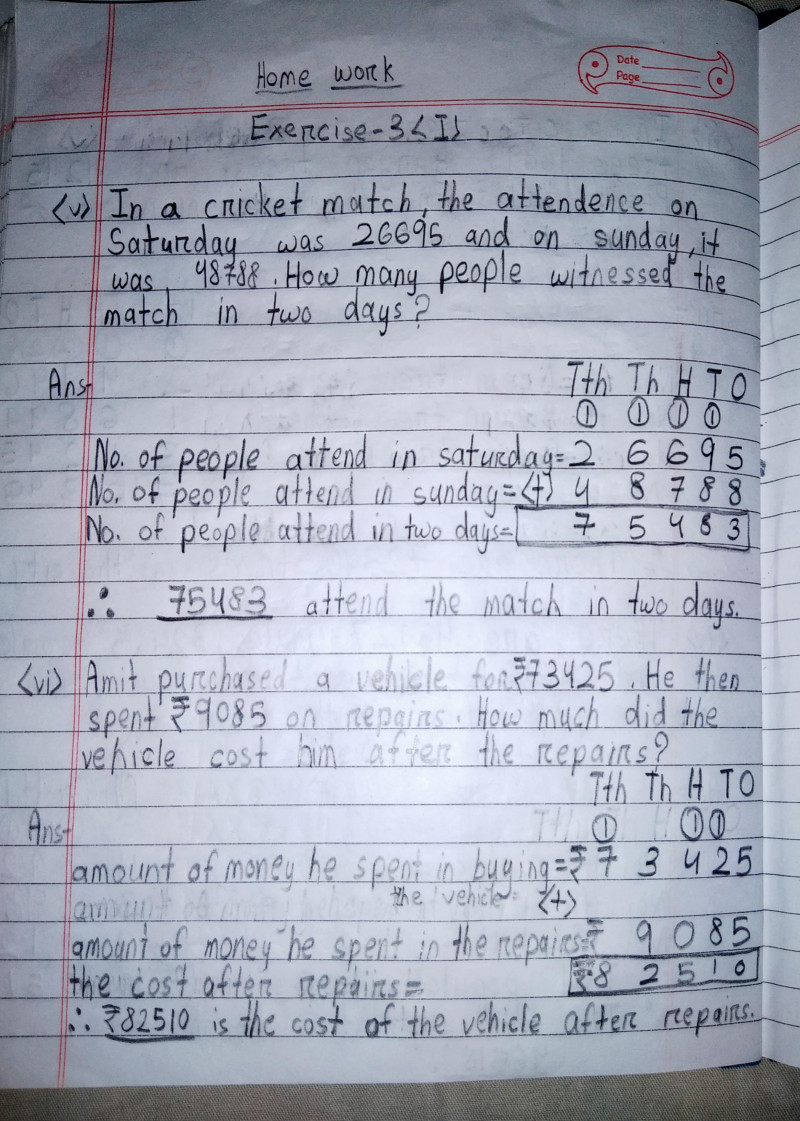 Home work
Date
Page
Exercise-3<I>
<v> In a cricket match, the attendence on
Saturday was 26695 and on sunday, it
was, 48788. How many people witnessed the
match in two days?
Ans
Tth Th H T O
1 1 1 1
No. of people attend in saturday= 2 6 6 9 5
No. of people attend in sunday=<+> 4 8 7 8 8
No. of people attend in two days= 7 5 4 8 3
∴ 75483 attend the match in two days.
<vi> Amit purchased a vehicle for ₹73425. He then
spent ₹9085 on repairs. How much did the
vehicle cost him after the repairs?
Tth Th H T O
Ans
1 1 1
amount of money he spent in buying=₹ 7 3 4 2 5
the vehicle= <+>
amount of money he spent in the repairs=₹ 9 0 8 5
the cost after repairs= ₹8 2 5 1 0
∴ ₹82510 is the cost of the vehicle after repairs.